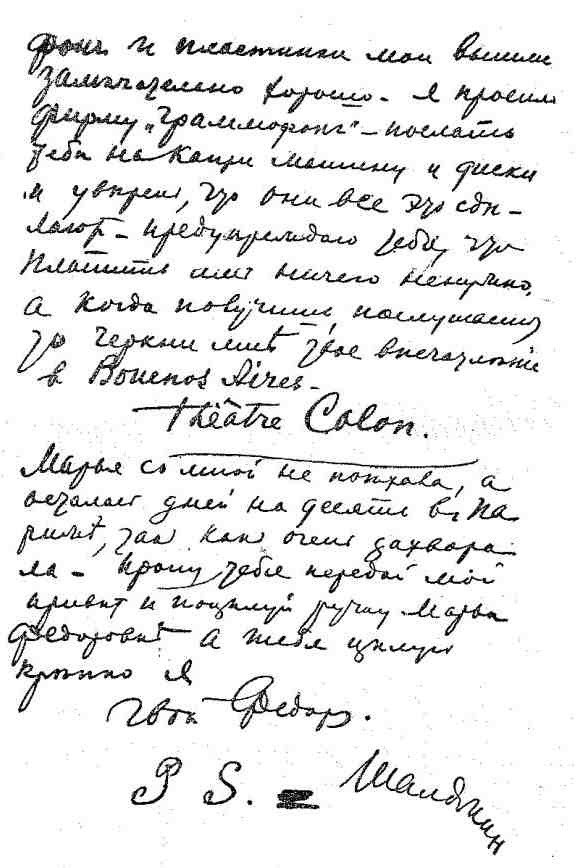 фонъ и пластинки мои вышли
замѣчательно хорошо – я просилъ
фирму „Граммофонъ“ – послать
тебѣ на Капри машину и диски
и увѣренъ, что они все это сдѣ-
лаютъ – предупреждаю тебя, что
платить имъ ничего ненужно,
а когда получишь, послушаешь
то черкни мнѣ твое впечатлѣніе
в Bouenos Aires –
Théâtre Colon.
Марья со мной не поѣхала, а
осталась дней на десять въ Па-
рижѣ, так как очень захвора-
ла – прошу тебя передай мой
привѣт и поцѣлуй ручку Марьи
Федоровнѣ а тебя цѣлую
крѣпко я
Твой Федоръ.
P S. = Шаляпин